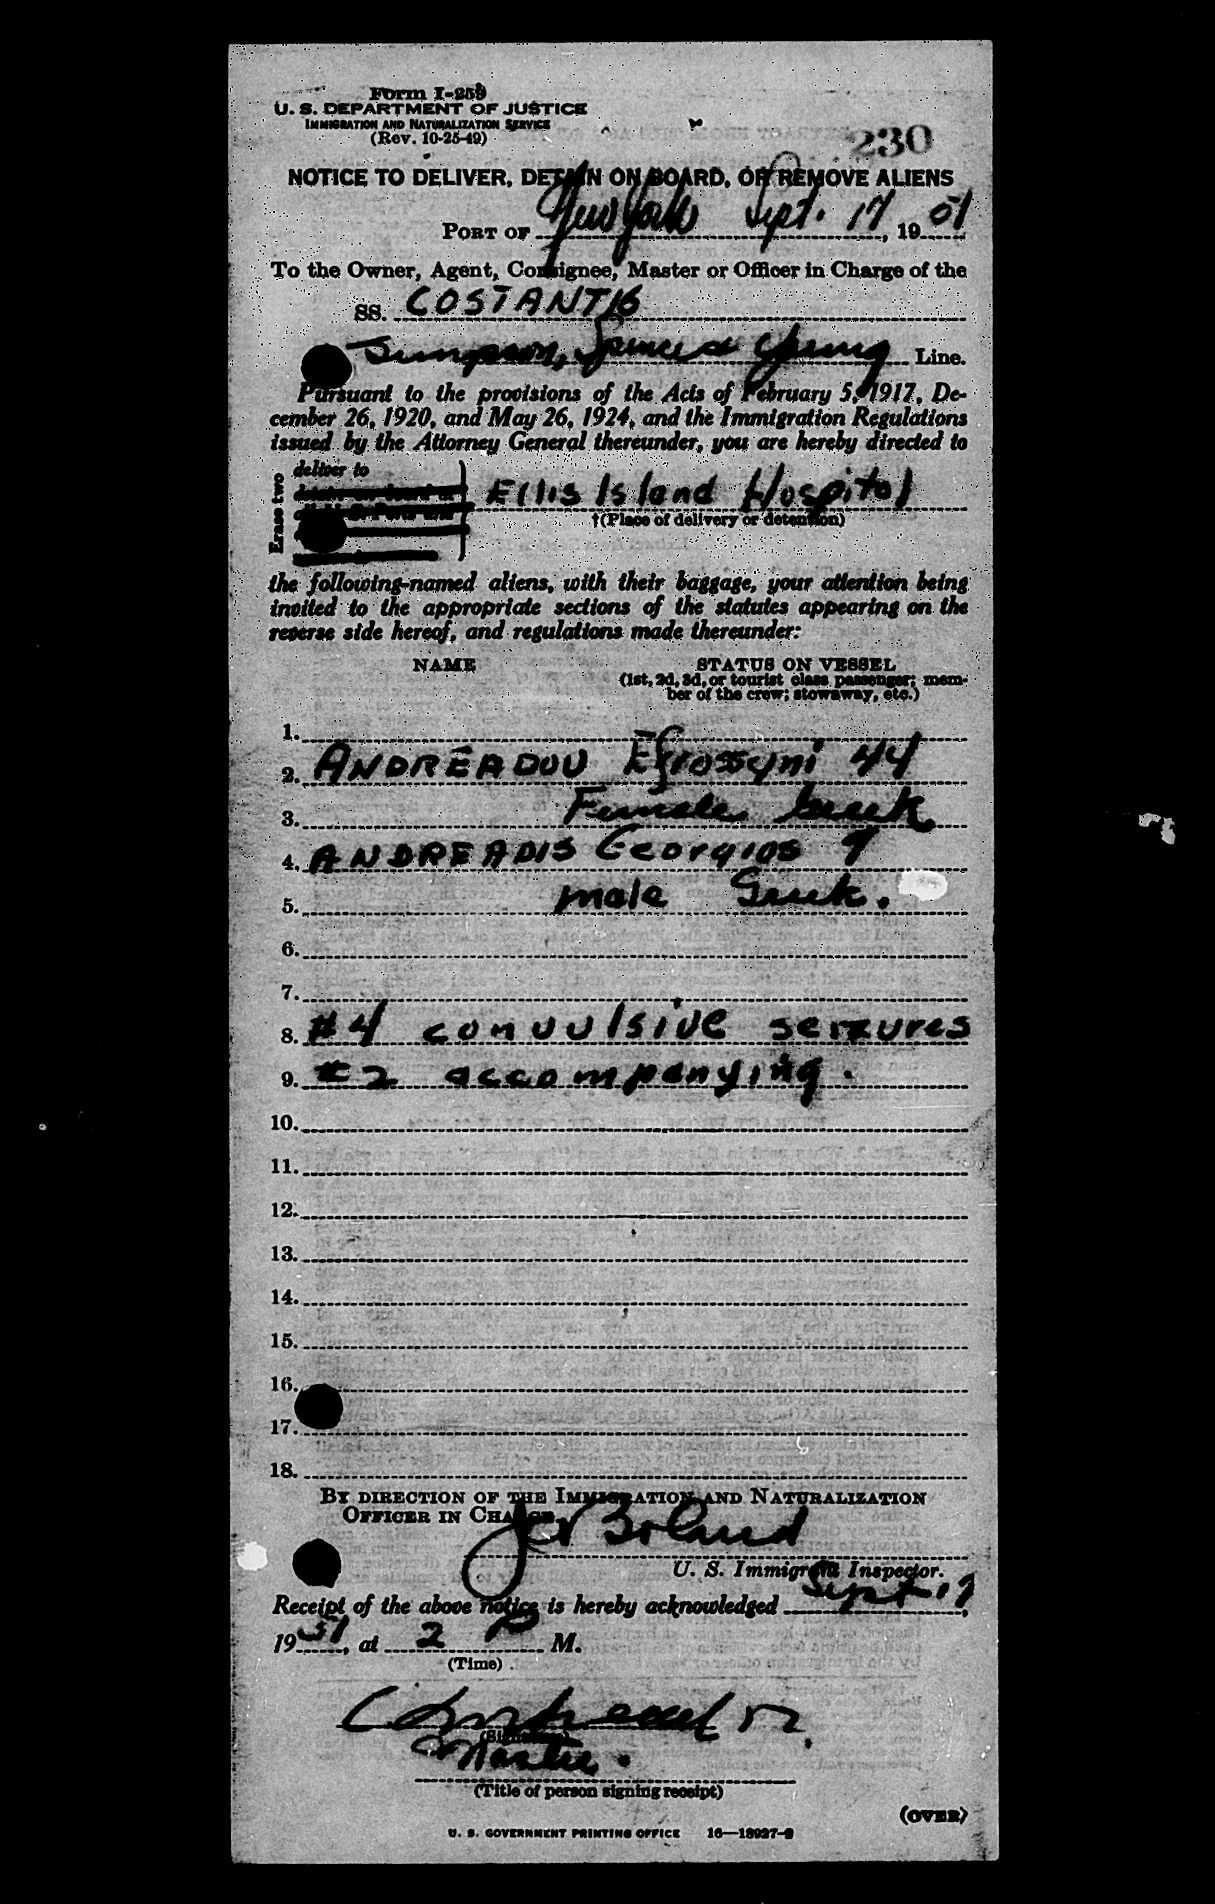 Form I-259
U. S. DEPARTMENT OF JUSTICE
IMMIGRATION AND NATURALIZATION SERVICE
(Rev. 10-25-49)
230
NOTICE TO DELIVER, DETAIN ON BOARD, OR REMOVE ALIENS
PORT OF New York Sept. 17, 1951
To the Owner, Agent, Consignee, Master or Officer in Charge of the
SS. COSTANTIS
Simpson, Spence & Young Line.
Pursuant to the provisions of the Acts of February 5, 1917, De-
cember 26, 1920, and May 26, 1924, and the Immigration Regulations
issued by the Attorney General thereunder, you are hereby directed to
Erase two
deliver to
Ellis Island Hospital
†(Place of delivery or detention)
the following-named aliens, with their baggage, your attention being
invited to the appropriate sections of the statutes appearing on the
reverse side hereof, and regulations made thereunder:
NAME STATUS ON VESSEL
(1st, 2d, 3d, or tourist class passenger; mem-
ber of the crew; stowaway, etc.)
1.
2. ANDREADOU Efrossyni 44
3. Female Greek
4. ANDREADIS Georgios 9
5. male Greek.
6.
7.
8. #4 convulsive seizures
9. #2 accompanying.
10.
11.
12.
13.
14.
15.
16.
17.
18.
BY DIRECTION OF THE IMMIGRATION AND NATURALIZATION
OFFICER IN CHARGE
Boland
U. S. Immigrant Inspector.
Receipt of the above notice is hereby acknowledged Sept 17,
1951, at 2 P M.
(Time)
(Signature)
Master.
(Title of person signing receipt)
(OVER)
U. S. GOVERNMENT PRINTING OFFICE 16—18927-2